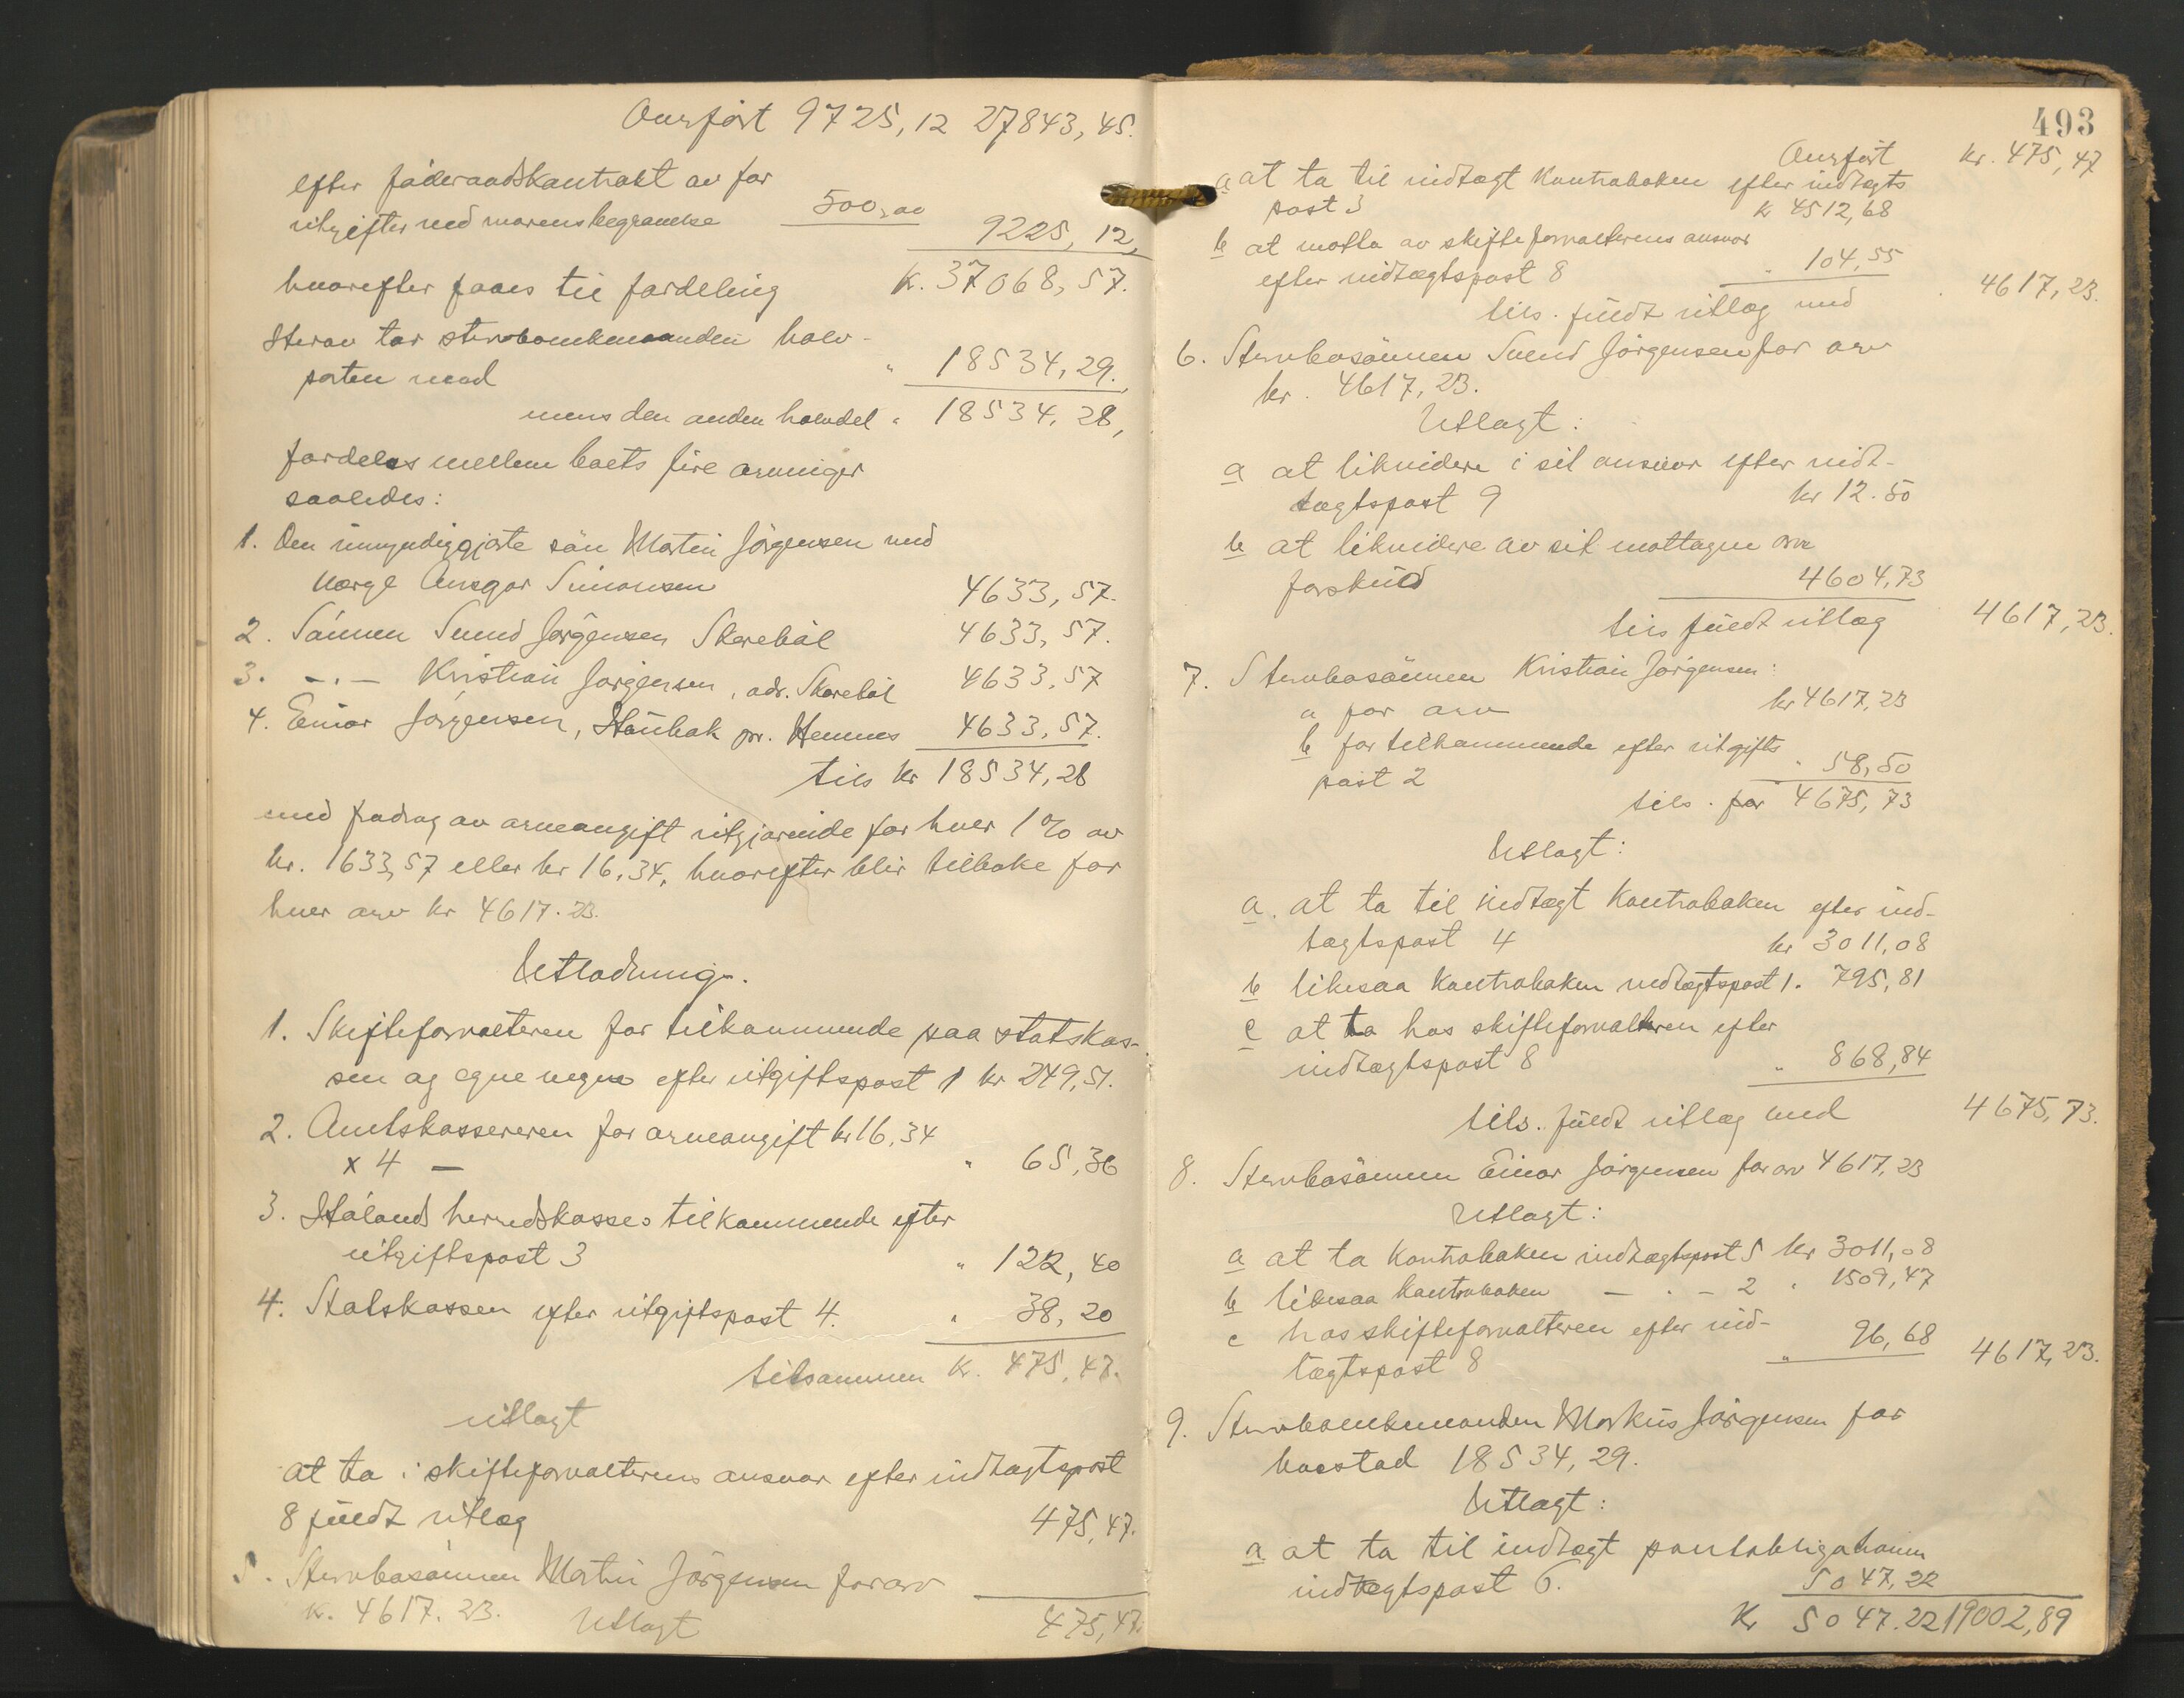 Overført 9725,12 27843,45.
efter føderaadskontrakt av for
utgifter ved morens begravelse 500,00
9225,12,
hvorefter haves til fordeling k. 37068,57.
Herav tar stervboenkemanden halv-
parten med " 18534,29.
mens den anden halvdel " 18534,28,
fordeles mellem boets fire arvinger
saaledes:
1. Den umyndiggjorte søn Martin Jørgensen ved
verge Ansgar Simonsen 4633,57.
2. Sønnen Svend Jørgensen Skarebøl 4633,57.
3. -"- Kristian Jørgensen, adr. Skarebøl 4633,57
4. Einar Jørgensen, Hønbak pr. Hemnes 4633,57.
tils kr 18534,28
med fradrag av arveavgift utgjørende for hver 1% av
kr. 1633,57 eller kr 16,34, hvorefter blir tilbake for
hver arv kr 4617.23.
Utlodning.
1. Skifteforvalteren for tilkommende paa statskas-
sen og egne vegne efter utgiftspost 1 kr 249,51.
2. Amtskassereren for arveavgift kr 16,34
x 4 — " 65,36
3. Høland herredskasses tilkommende efter
utgiftspost 3 " 122,40
4. Statskassen efter utgiftspost 4. " 38,20
tilsammen kr. 475,47.
utlagt
at ta i skifteforvalterens ansvar efter indtægtspost
8 fuldt utlæg 475,47.
5. Stervbosønnen Martin Jørgensen for arv
k. 4617.23. Utlagt 475,47.
493
Overført kr. 475,47
a at ta til indtægt kontraboken efter indtægts
post 3 k 4512,68
b at motta av skifteforvalterens ansvar
efter indtægtspost 8 " 104,55
tils. fuldt utlæg med 4617,23.
6. Stervbosønnen Svend Jørgensen for arv
kr. 4617,23.
Utlagt:
a at likvidere i sit ansvar efter indt-
tægtspost 9 kr 12.50
b at likvidere av sit mottagne arve
forskud 4604,73
tils fuldt utlæg 4617,23.
7. Stervbosønnen Kristian Jørgensen:
a for arv kr 4617,23
b for tilkommende efter utgifts
post 2 " 58,50
tils. for 4675,73
Utlagt:
a. at ta til indtægt kontraboken efter ind-
tægtspost 4 kr 3011,08
b likesaa kontraboken indtægtspost 1. 795,81
c at ta hos skifteforvalteren efter
indtægtspost 8 " 868,84
tils. fuldt utlæg med 4675,73.
8. Stervbosønnen Einar Jørgensen for arv 4617,23
Utlagt:
a at ta kontraboken indtægtspost 5 kr 3011,08
b likesaa kontraboken — " — 2 " 1509,47
c hos skifteforvalteren efter ind-
tægtspost 8 " 96,68 4617,23.
9. Stervboenkemanden Markus Jørgensen for
boeslod 18534,29.
Utlagt:
a at ta til indtægt pantobligationen
indtægtspost 6. 5047,22
Kr 5047.22 19002,89